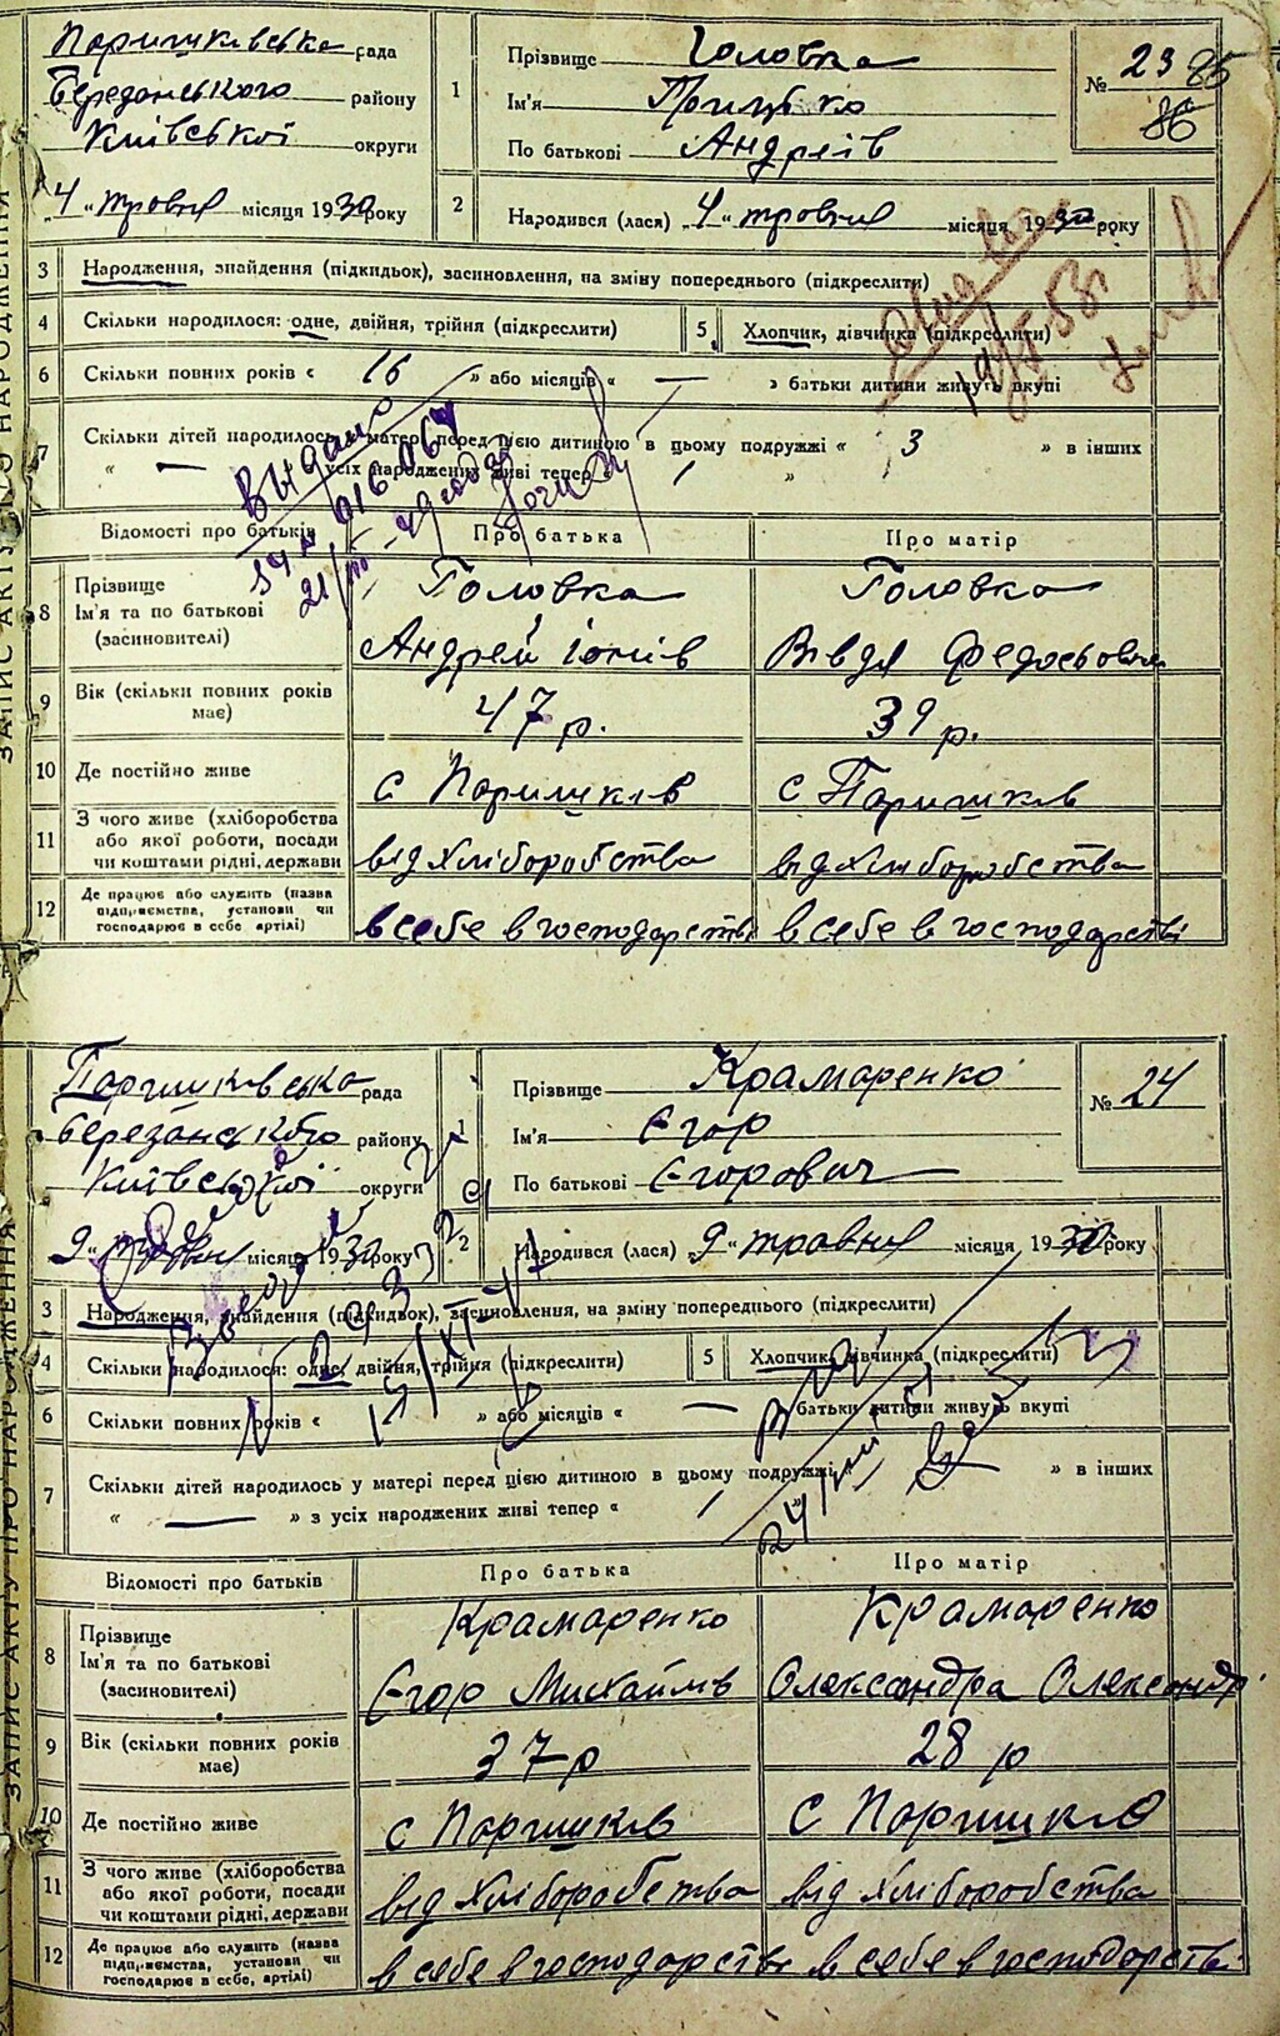 ЗАПИС АКТУ ПРО НАРОДЖЕННЯ
Паришківська рада
Березанського району
Київської округи
„4“ травня місяця 1930 року
1 Прізвище Головка
Ім'я Грицько
По батькові Андреїв
№ 23 85
86
2 Народився (лася) „4“ травня місяця 1930 року
3 Народження, знайдення (підкидьок), засиновлення, на зміну попереднього (підкреслити)
4 Скільки народилося: одне, двійня, трійня (підкреслити)
5 Хлопчик, дівчинка (підкреслити)
6 Скільки повних років « 16 » або місяців « — » батьки дитини живуть вкупі
7 Скільки дітей народилось у матері перед цією дитиною в цьому подружжі « 3 » в інших
« — » з усіх народжених живі тепер « »
Відомості про батьків Про батька Про матір
8 Прізвище Головка Головка
Ім'я та по батькові
(засиновителі) Андрей Івдя Федосьовна
9 Вік (скільки повних років має) 47 р. 39 р.
10 Де постійно живе с Паришків с Паришків
11 З чого живе (хліборобства або якої роботи, посади чи коштами рідні, держави від хліборобства від хліборобства
12 Де працює або служить (назва підприємства, установи чи господарює в себе артілі) в себе в господарстві в себе в господарстві
Видано
ЗАПИС АКТУ ПРО НАРОДЖЕННЯ
Паришківська рада
Березанського району
Київської округи
„9“ травня місяця 1930 року
1 Прізвище Крамаренко
Ім'я Єгор
По батькові Єгорович
№ 24
2 Народився (лася) „9“ травня місяця 1930 року
3 Народження, знайдення (підкидьок), засиновлення, на зміну попереднього (підкреслити)
4 Скільки народилося: одне, двійня, трійня (підкреслити)
5 Хлопчик, дівчинка (підкреслити)
6 Скільки повних років « » або місяців « — » батьки дитини живуть вкупі
7 Скільки дітей народилось у матері перед цією дитиною в цьому подружжі « » в інших
« — » з усіх народжених живі тепер « »
Відомості про батьків Про батька Про матір
8 Прізвище Крамаренко Крамаренко
Ім'я та по батькові
(засиновителі) Єгор Михайлів Олександра Олександр
9 Вік (скільки повних років має) 37 р 28 р
10 Де постійно живе с Паришків с Паришків
11 З чого живе (хліборобства або якої роботи, посади чи коштами рідні, держави від хліборобства від хліборобства
12 Де працює або служить (назва підприємства, установи чи господарює в себе, артілі) в себе в господарстві в себе в господарстві